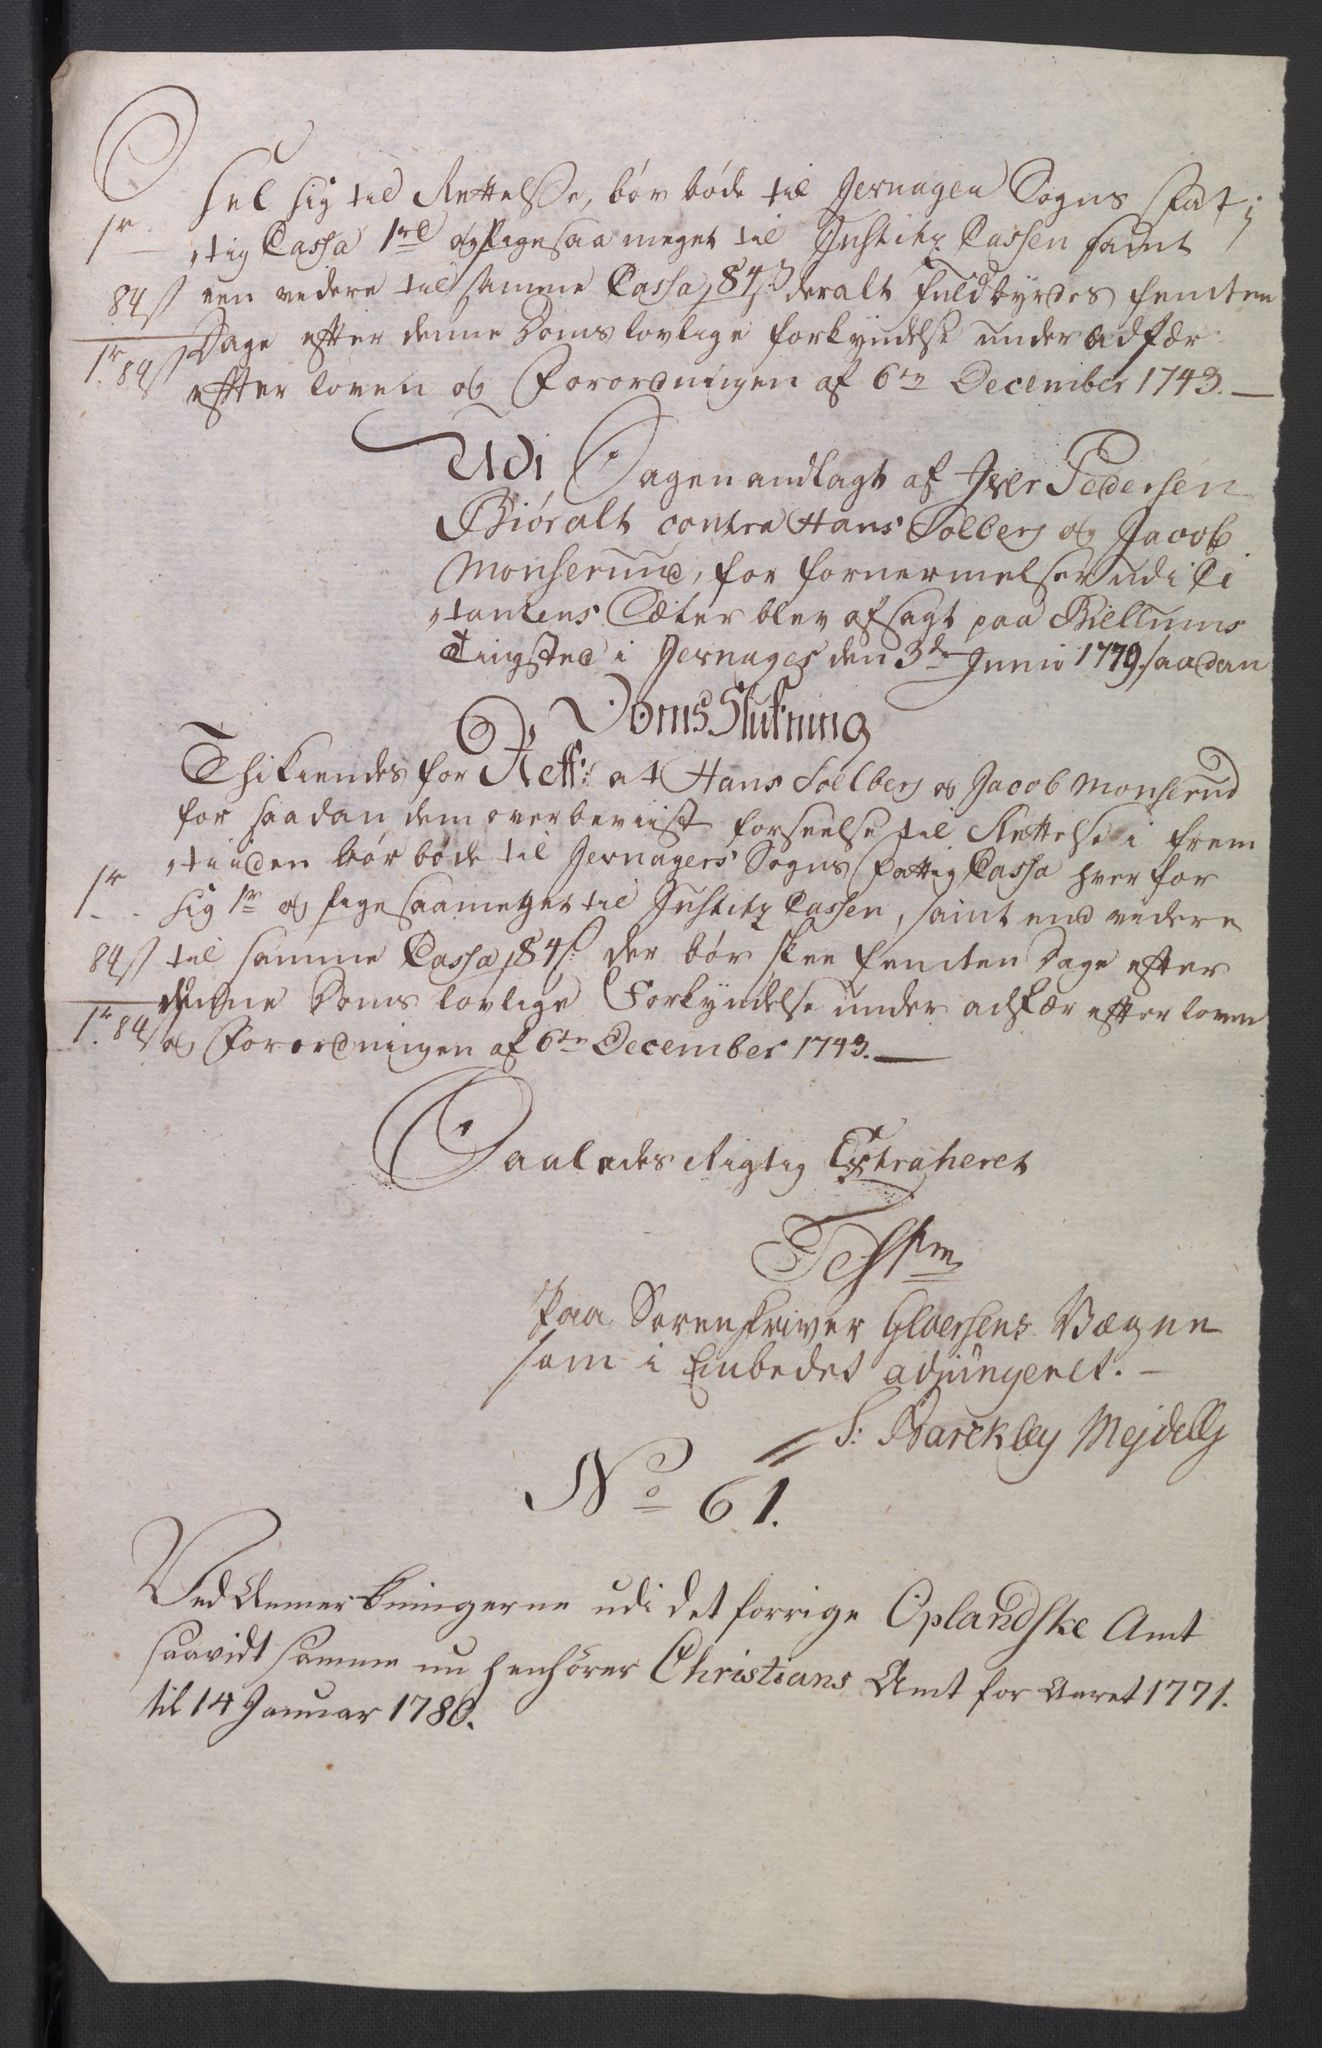 Sel sig til Rettelse, bør bøde til Jevnager Sogns Fat
1r tig Cassa 1rd og ligesaa meget til Justitz Cassen samt
84s een videre til samme Cassa 84s: deralt fuldbyrdes femten
1r. 84s Dage efter denne Doms lovlige forkyndelse under adfær
efter loven og Forordningen af 6te December 1743.
Udi Sagen andlagt af Iver Pedersen
Biøralt contra Hans Solberg og Jacob
Monserud, for fornermelser udi Ci
tantens Sæter blev afsagt paa Billums
Tingsted i Jevnager den 3de Junio 1779. saadan
Doms Slutning
Thi kiendes for Rett: at Hans Sollberg og Jacob Monserud
for saadan dem overbeviist forseelse til Rettelse i frem
tiiden bør bøde til Jevnagers Sogns fattig Cassa hver for
1r sig 1r og lige saameget til Justitz Cassen, samt end videre
84s til samme Cassa 84s: der bør skee femten Dage efter
denne Doms lovlige Forkyndelse under adfær efter loven
1r. 84s og Forordningen af 6te December 1743.
Saaledes Rigtig Extraheret
Testm
Paa Sorenskriver Gloersens Vægne
som i Embedet adjungeret.
S: Barckley Mejdell
No 61.
Ved Anmerkningerne udi det forrige Oplandske Amt
saavidt samme nu henhører Christians Amt for Aaret 1771.
til 14 Januar 1780.